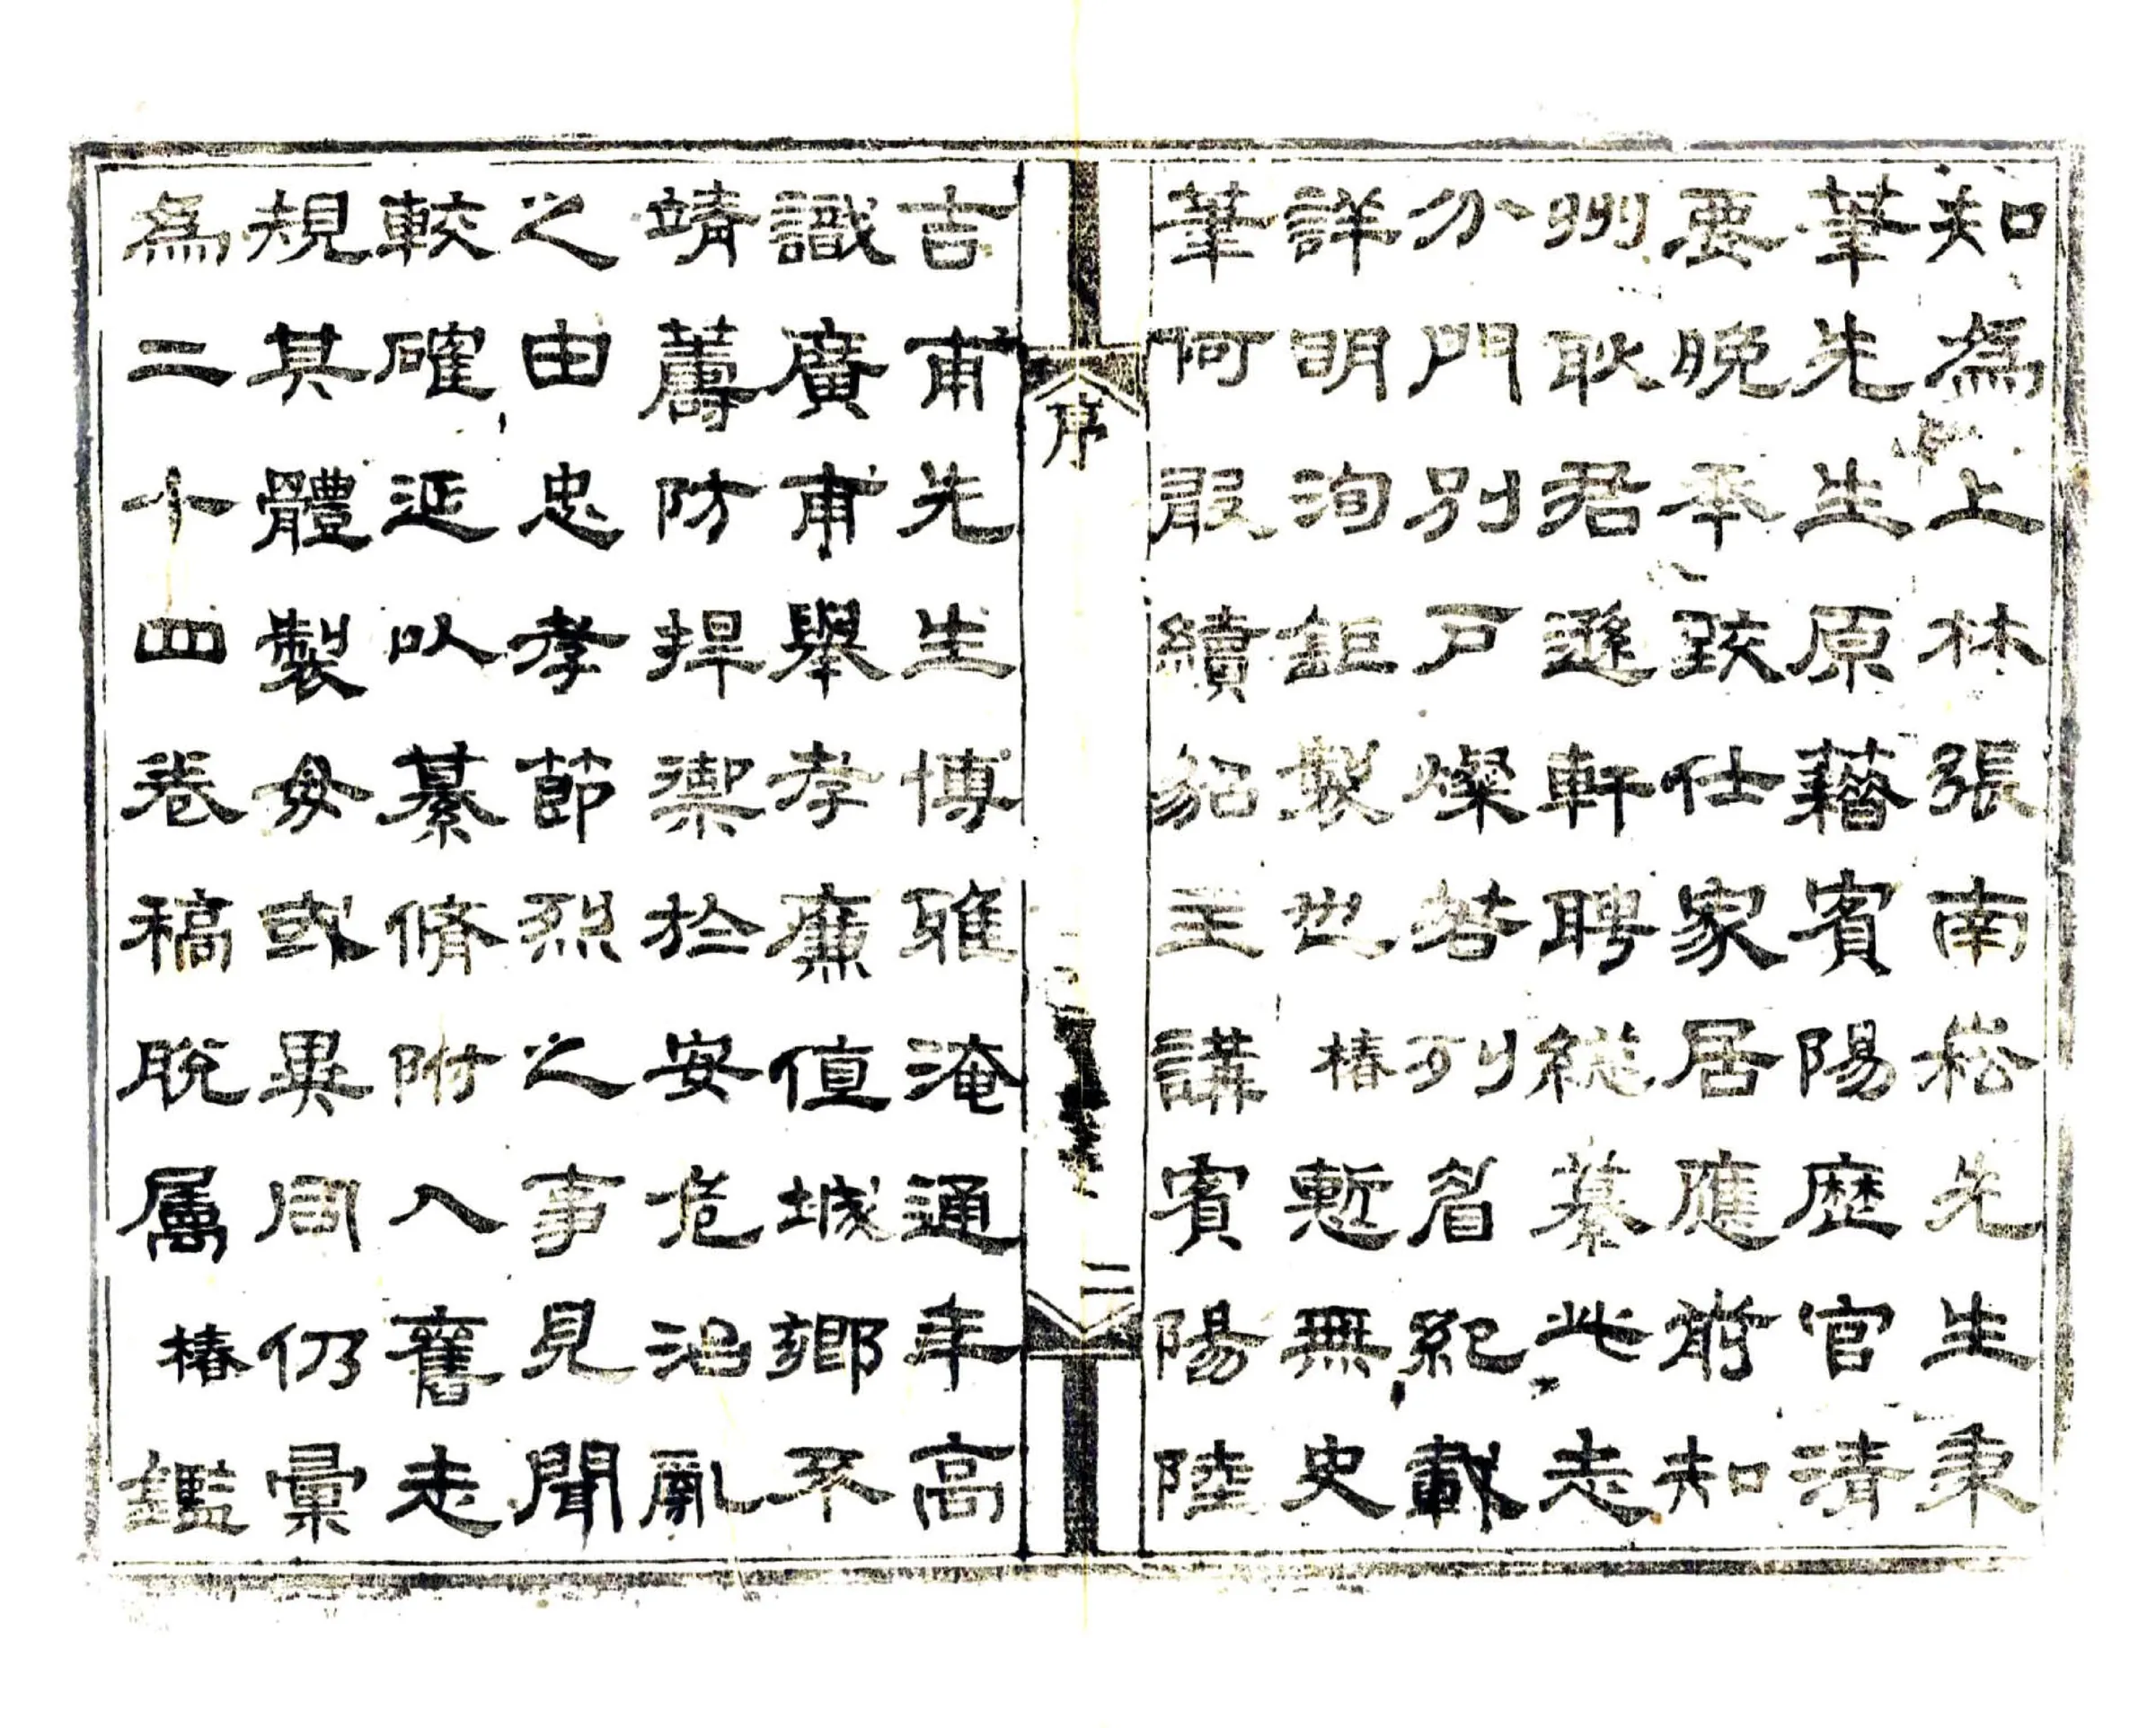 知為上林張南崧先生秉
筆先生原藉賓陽歷官清
要晚年致仕家居應前知
州耿君遜軒聘總纂此志
分門別戶燦若列眉紀載
詳明洵鉅製也椿慙無史
筆何敢續貂主講賓陽陸
序
二
吉甫先生博雅淹通年高
識廣甫舉孝廉值城鄉不
靖籌防捍禦於安危治亂
之由忠孝節烈之事見聞
較確延以纂脩附入舊志
規其體製毋或異同仍彙
為二十四卷稿脫屬椿鑑